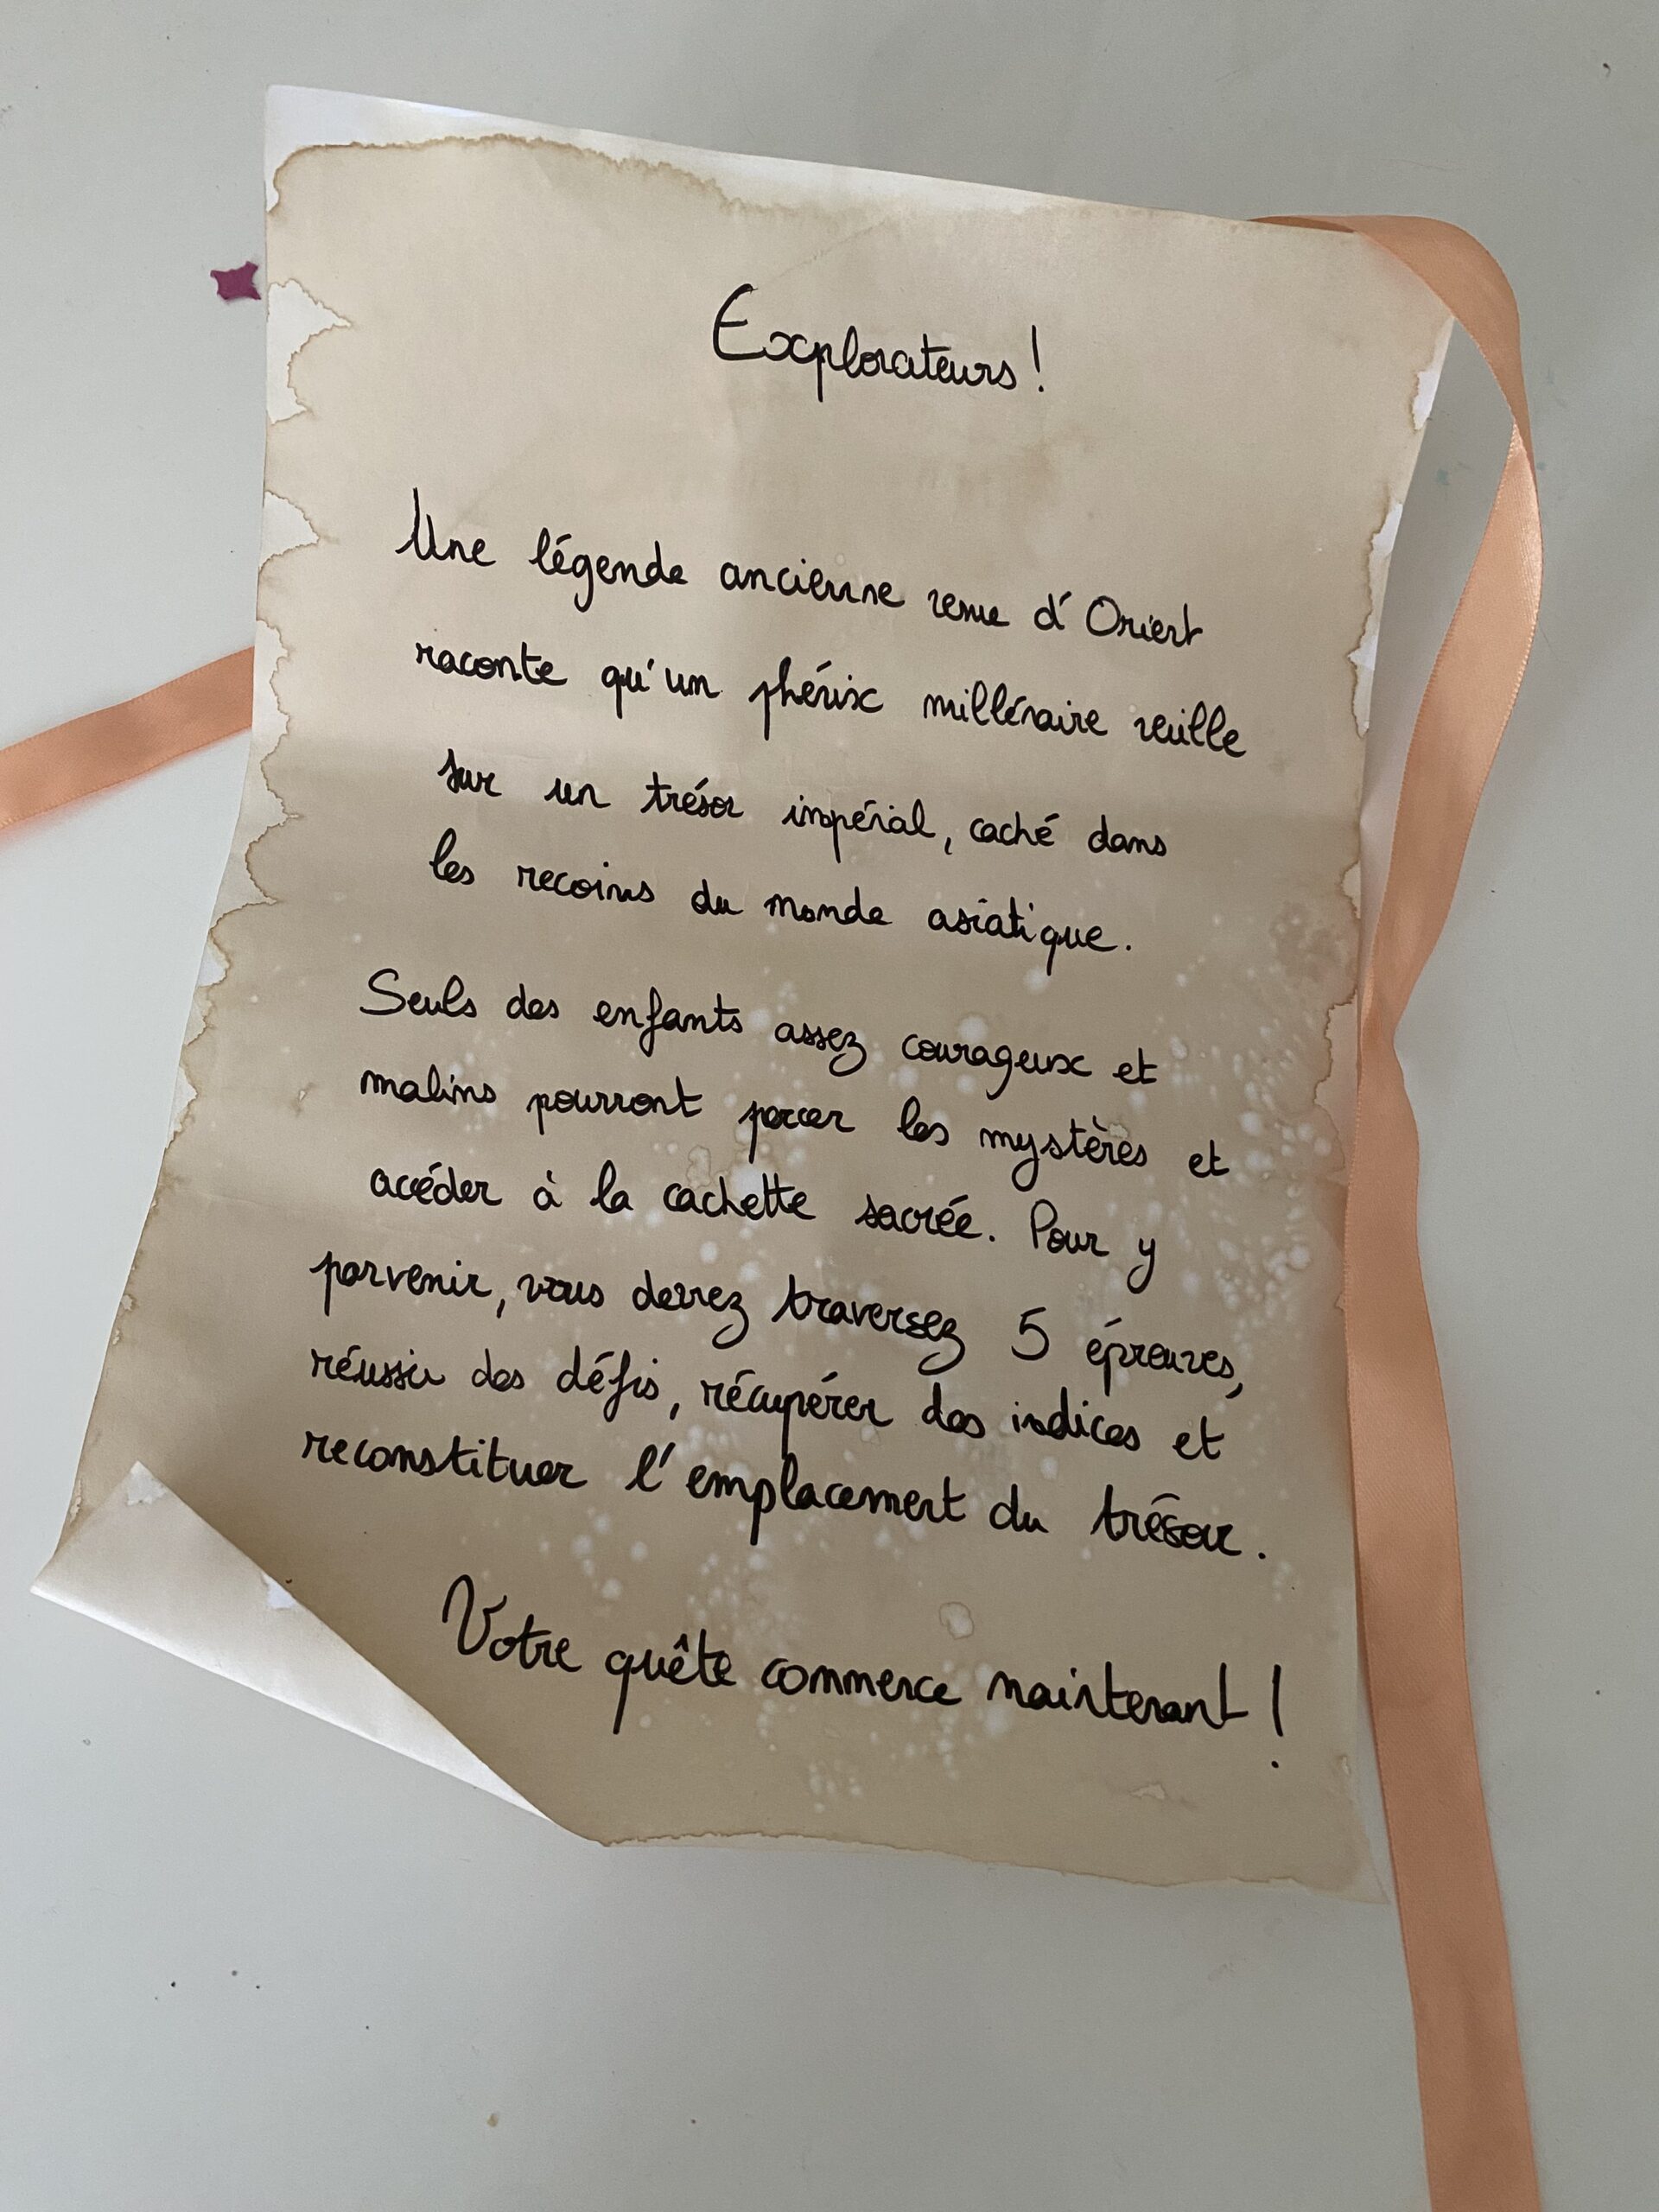 Explorateurs !
Une légende ancienne venue d'Orient
raconte qu'un phénix millénaire veille
sur un trésor impérial, caché dans
les recoins du monde asiatique.
Seuls des enfants assez courageux et
malins pourront percer les mystères et
accéder à la cachette sacrée. Pour y
parvenir, vous devrez traversez 5 épreuves,
réussir des défis, récupérer des indices et
reconstituer l'emplacement du trésor.
Votre quête commence maintenant !